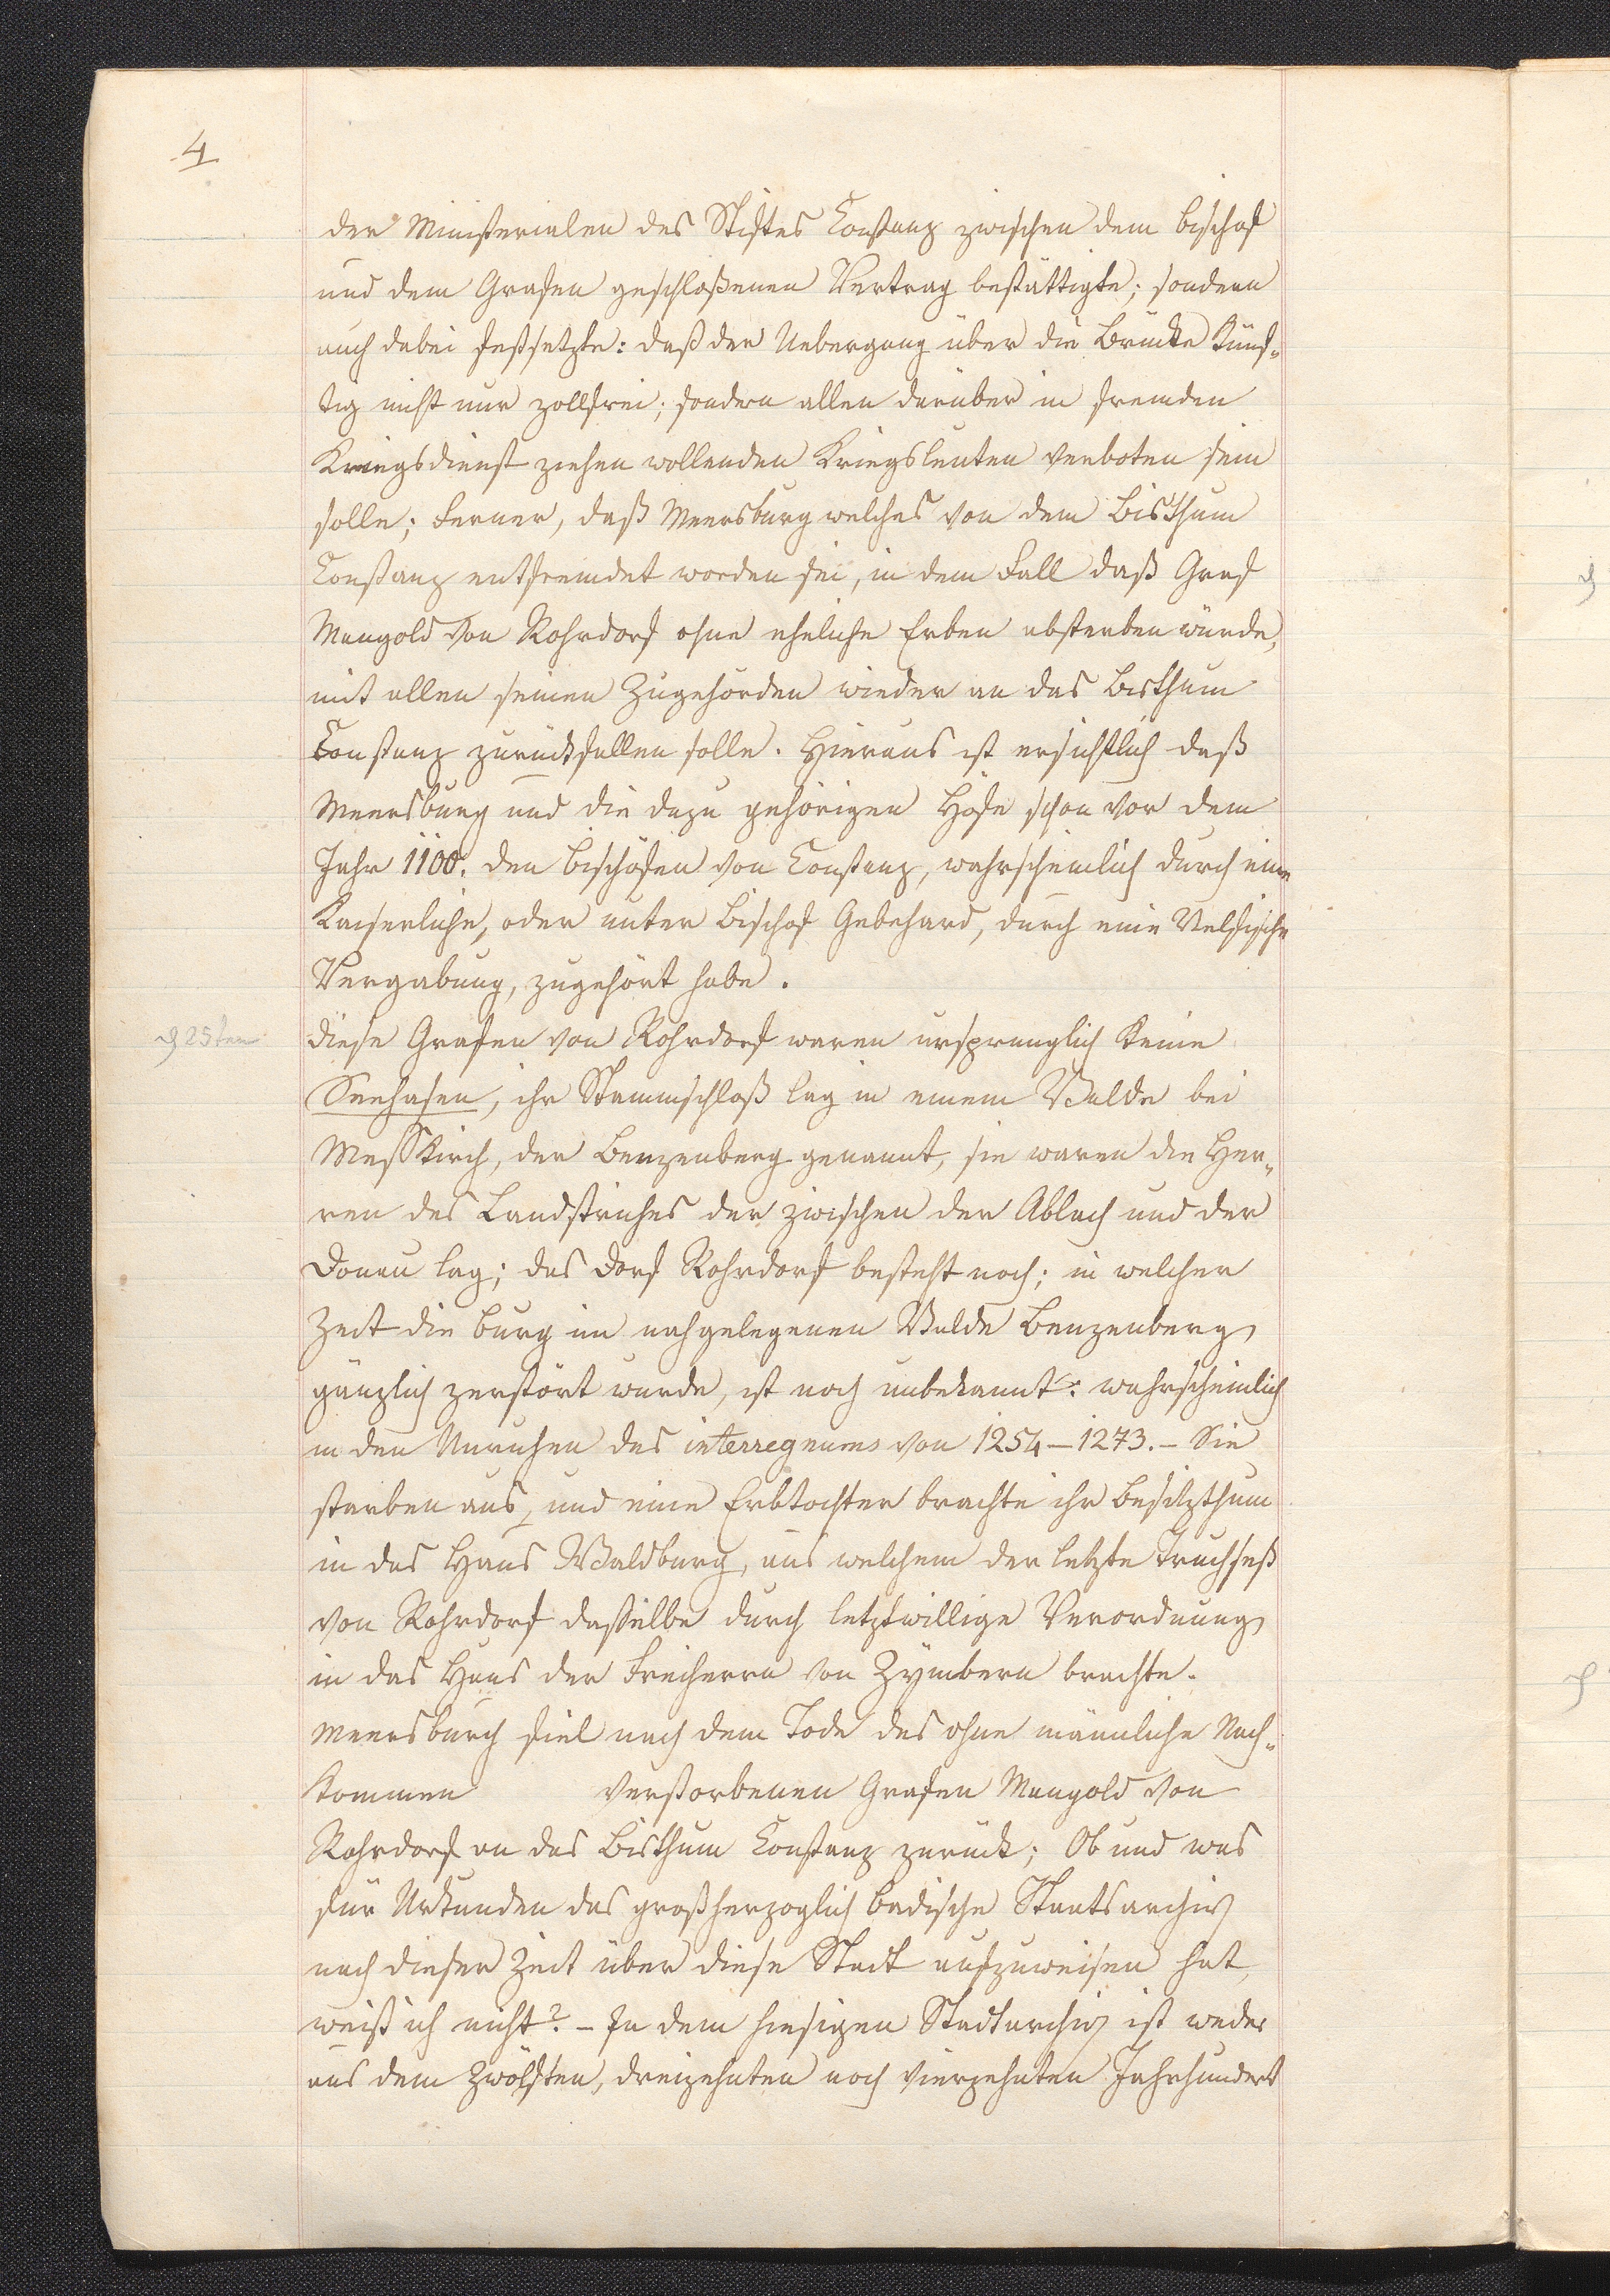 4
der Ministerialen des Stiftes Constanz zwischen dem Bischof
und dem Grafen geschloßenen Vertrag bestättigte; sondern
auch dabei festsetzte: daß der Uebergang über die Brücke künf-
tig nicht nur zollfrei; sondern allen darüber in fremden
Kriegsdienst ziehen wollenden Kriegsleuten verboten sein
solle; Ferner, daß Meersburg welches von dem Bisthum
Constanz entfremdet worden sei, in dem Fall daß Graf
Mangold von Rohrdorf ohne eheliche Erben absterben würde,
mit allen seinen Zugehörden wieder an das Bisthum
Constanz zurückfallen solle. Hieraus ist ersichtlich daß
Meersburg und die dazu gehörigen Höfe schon vor dem
Jahr 1100. den Bischöfen von Constanz, wahrscheinlich durch eine
Kaiserliche, oder unter Bischof Gebehard, durch eine Welfische
Vergabung, zugehört habe.
25ten
diese Grafen von Rohrdorf waren ursprunglich keine
Seehasen, ihr Stammschloß lag in einem Walde bei
Messkirch, der Benzenberg genannt, sie waren die Her-
ren des Landstriches der zwischen der Ablach und der
Donau lag; das Dorf Rohrdorf besteht noch; in welcher
Zeit die Burg im nahgelegenen Walde Benzenberg
gänzlich zerstört wurde, ist noch unbekannt: wahrscheinlich
in den Unruhen des interregnums von 1254-1273. - Sie
starben aus, und eine Erbtochter brachte ihr Besitzthum
in das Haus Waldburg, aus welchem der letzte Truchseß
von Rohrdorf dasselbe durch letztwillige Verordnung
in das Haus der Freiherrn von Zymbern brachte.
Meersburch fiel nach dem Tode des ohne männliche Nach-
kommen verstorbenen Grafen Mangold von
Rohrdorf an das Bisthum Constanz zurück; Ob und was
für Urkunden das großherzoglich badische Staatsarchiv
nach dieser Zeit über diese Stadt aufzuweisen hat,
weiß ich nicht? - In dem hiesigen Stadtarchiv ist weder
aus dem Zwölften, dreizehnten noch vierzehnten Jahrhundert